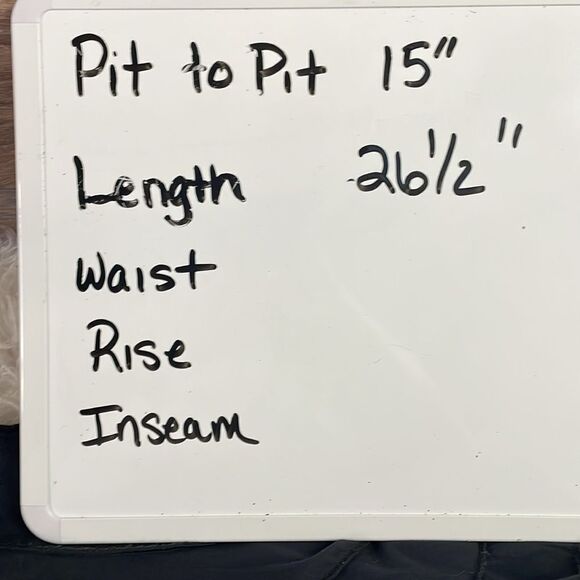 Pit to Pit 15"
Length 26 1/2"
Waist
Rise
Inseam